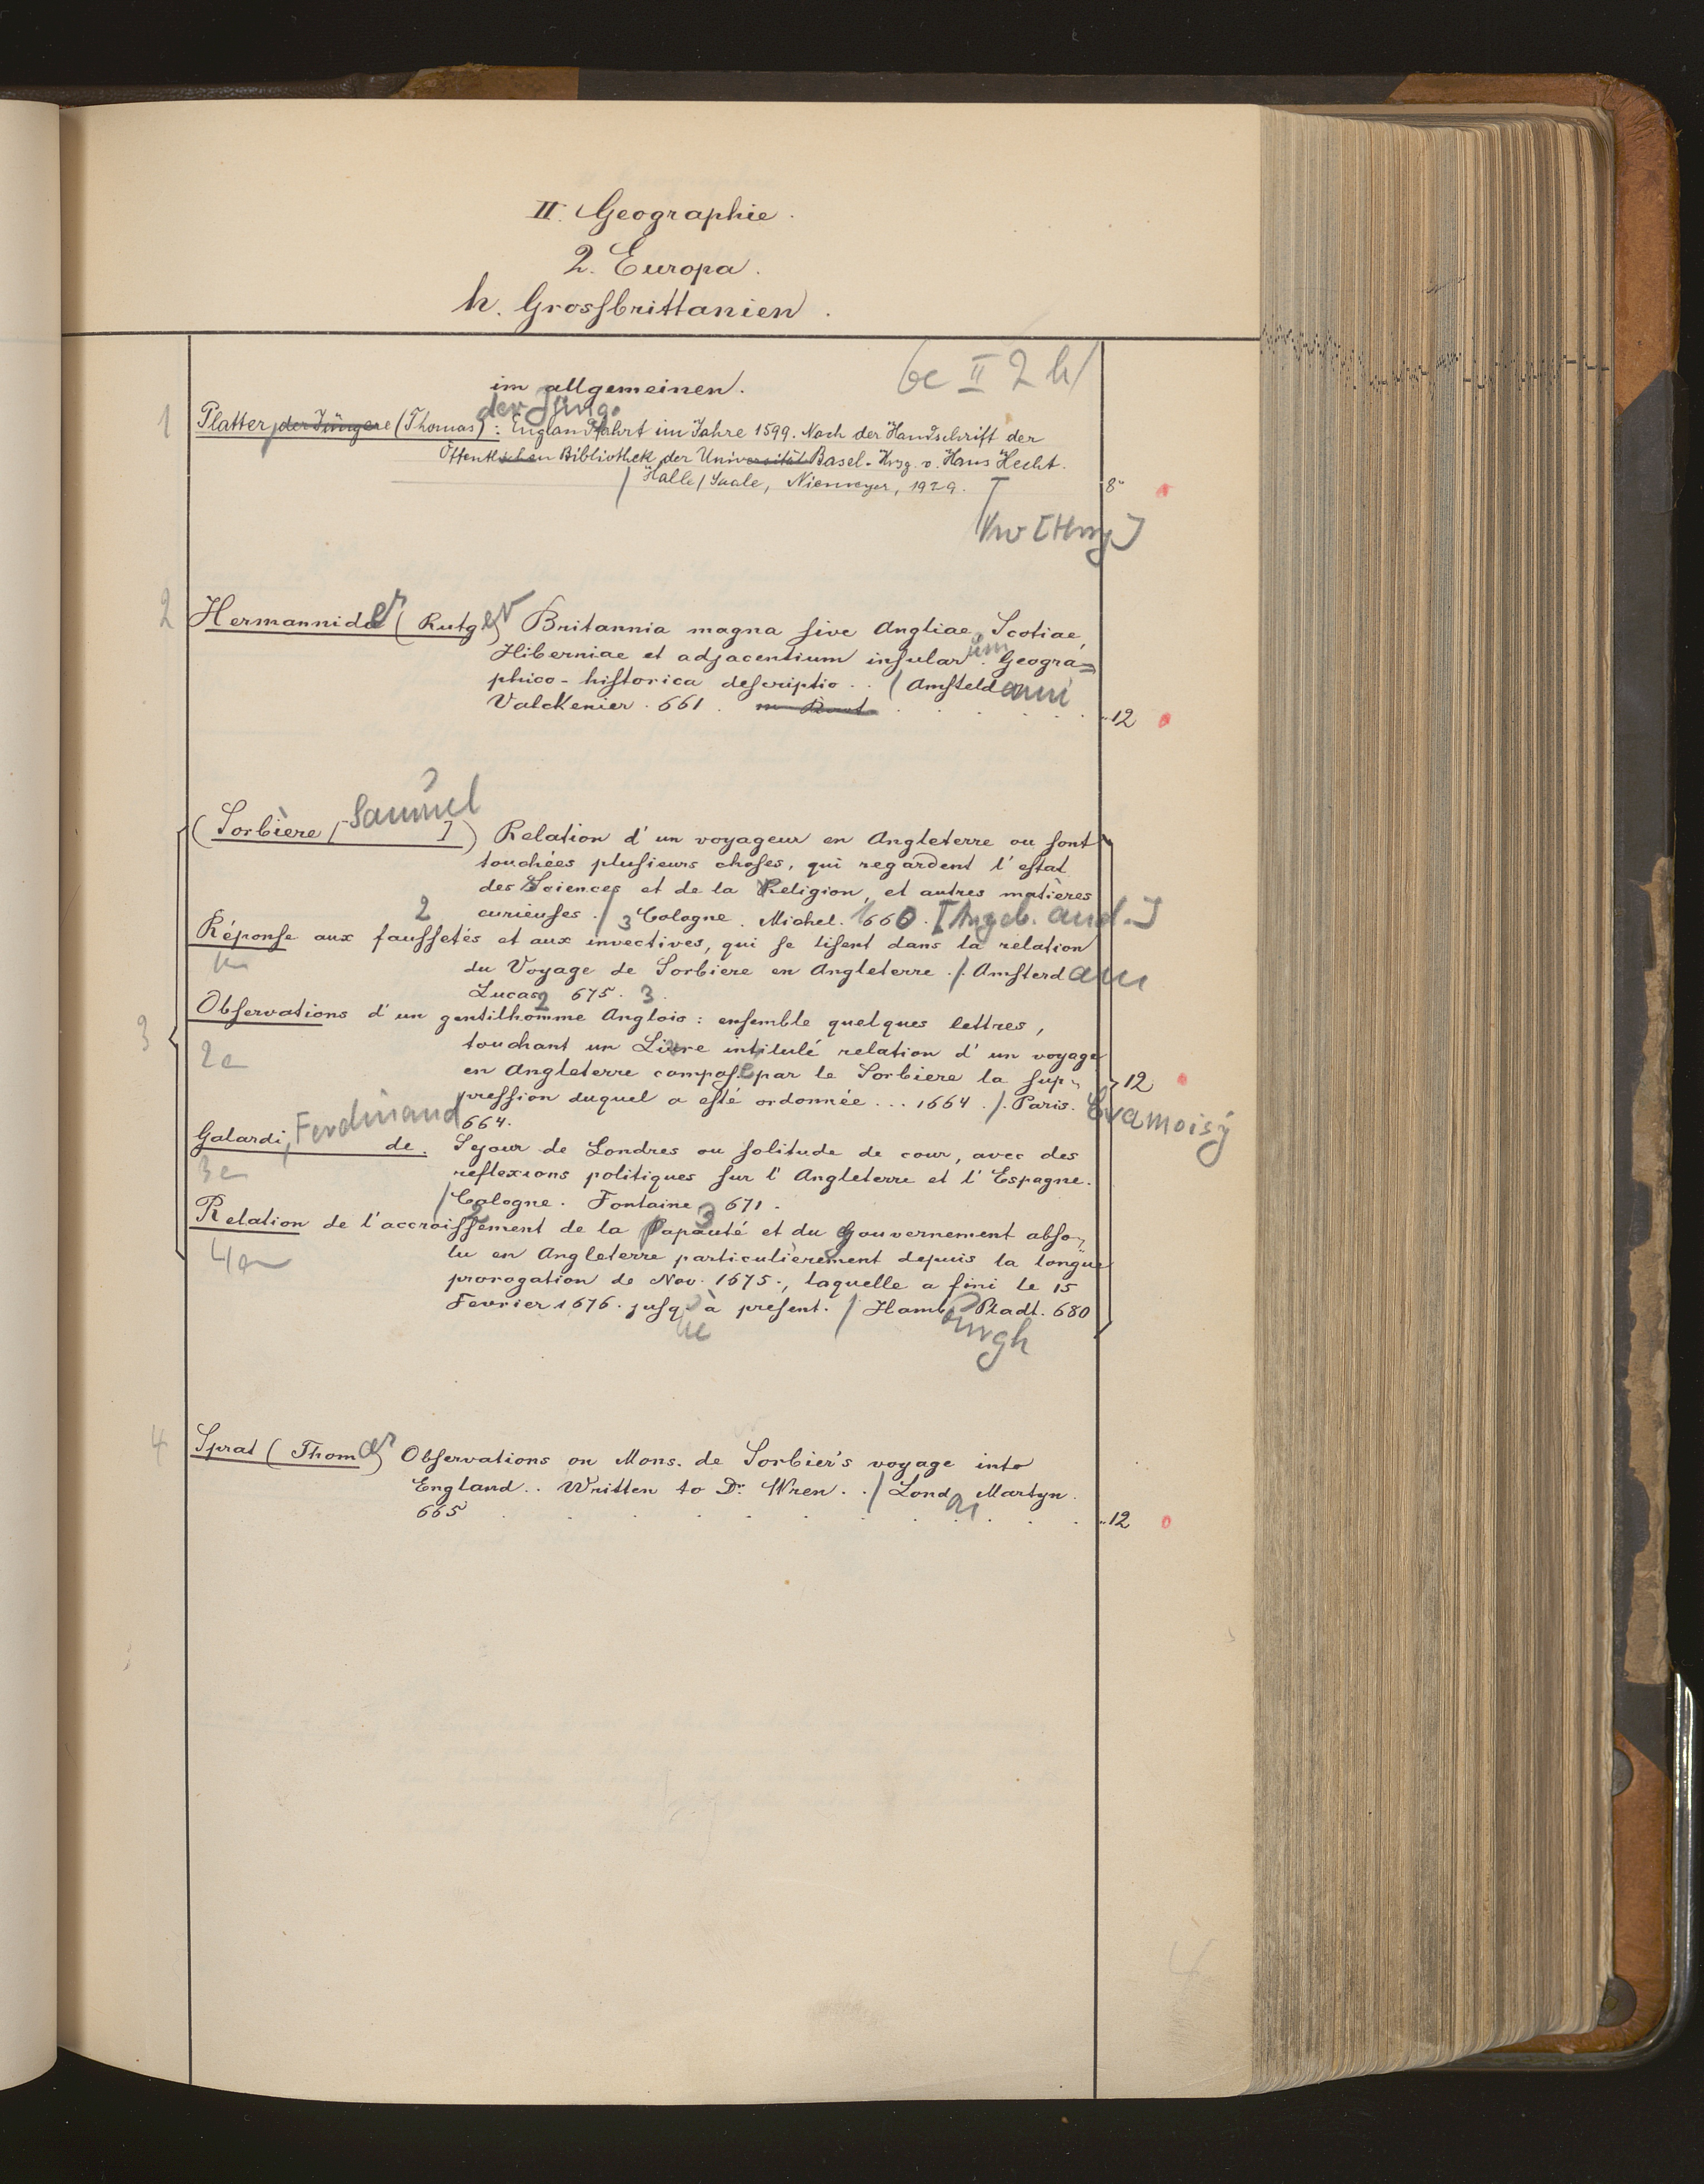 II. Geographie.
2. Europa.
h. Grossbrittanien.
6c II 2 h
im allgemeinen.
der Jüng.
1 Platter, der Jüngere (Thomas): Englandfahrt im Jahre 1599. Nach der Handschrift der
Öffentlichen Bibliothek der Universität Basel. Hrsg. v. Hans Hecht.
/ Halle/Saale, Niemeyer, 1929. 8°
[Hrsg]
2 Hermannides (Rutger) Britannia magna sive Angliae, Scotiae,
Hiberniae et adjacentium insularum Geogra=
phico-historica descriptio . . / Amsteldami
Valckenier. 661. 12
3 (Sorbière [Samuel]) Relation d'un voyageur en Angleterre ou sont
touchées plusieurs choses, qui regardent l'estat
des Sciences et de la Religion, et autres matières
curieuses. / 3 Cologne. Michel. 1660. [Angeb. and.]
Réponse aux faussetés et aux invectives, qui se lisent dans la relation
du Voyage de Sorbiere en Angleterre. / Amsterdam
Lucas 675.
Observations d'un gentilhomme Anglois: ensemble quelques lettres,
2e touchant un Livre intitulé relation d'un voyage
en Angleterre composé par le Sorbiere la sup=
pression duquel a esté ordonnée . . . 1664. / Paris. Cramoisy
664. 12
Galardi, Ferdinand de. Sejour de Londres ou solitude de cour, avec des
3e reflexions politiques sur l'Angleterre et l'Espagne.
/ Cologne. Fontaine 671.
Relation de l'accroissement de la Papauté et du Gouvernement abso=
lu en Angleterre particulièrement depuis la longue
prorogation de Nov. 1675., laquelle a fini le 15
Fevrier 1676. jusque à present. / Hambourgh Pladt. 680
4 Sprat (Thomas) Observations on Mons. de Sorbier's voyage into
England . . Written to Dr. Wren. . / London Martyn.
665 12